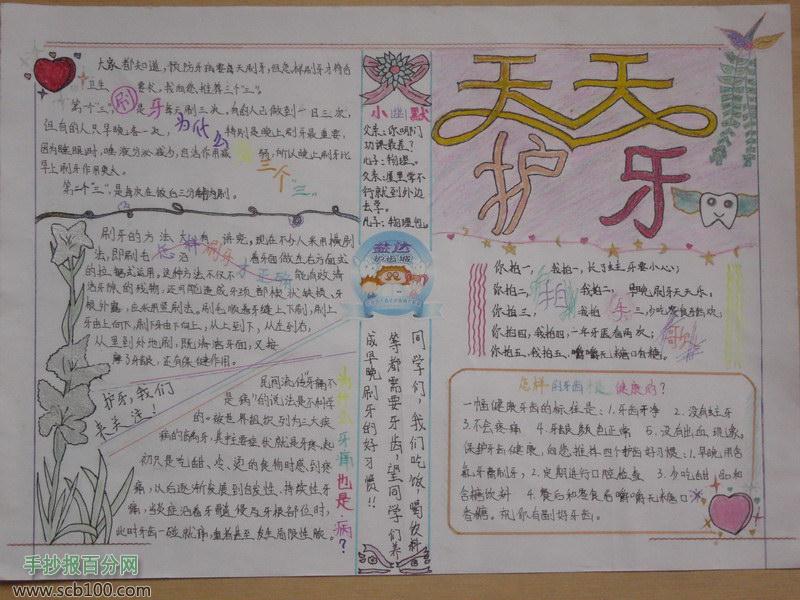 天天
护牙
大家都知道，预防牙病要每天刷牙，但怎样刷牙才符合
卫生 要求，我向您推荐三个"三"。
第一个"三"，是每天刷三次，有的人已做到一日三次，
但有的人只早晚各一次，特别是晚上刷牙最重要，
因为睡眠时，唾液分泌减少，自洁作用减弱，所以晚上刷牙比
早上刷牙作用更大。
第二个"三"，是每次在饭后三分钟内刷。
刷牙
为什么
三个"三"
刷牙的方法，大有讲究，现在不少人采用横刷
法，即刷毛
的拉锯式运用，这种方法不仅不能有效清
洁牙隙的残物，还可能造成牙颈部楔状缺损、牙
根外露，应采用竖刷法。刷毛顺着牙缝上下刷，刷上
牙由上向下，刷下牙由下向上，从上到下，从左到右，
从里到外地刷，既清洁牙面，又按
摩了牙龈，还有保健作用。
怎样刷牙才正确
护牙，我们
来关注！
民间流传"牙痛不
是病"的说法是不科学
的。被世界组织列为三大疾
病的龋病，其主要症状就是牙疼，起
初只是吃甜、冷、烫的食物时感到疼
痛，以后逐渐发展到自发性、持续性牙
痛，当炎症沿着牙髓侵与牙根部位时，
此时牙齿一碰就痛，重者甚至发生局限性脓。
为什么牙痛也是病？
小幽默
父亲：你哪门
功课最差？
儿子：物理。
父亲：屋里学不
行就到外边
去学。
儿子：物理也
益达
护齿城
同学们，我们吃饭，喝饮料
等都需要牙齿？望同学们养
成早晚刷牙的好习惯！！
你拍一，我拍一，长了蛀牙要小心；
你拍二，我拍二，早晚刷牙天天乐；
你拍三，我拍三，少吃零食多喝水；
你拍四，我拍四，一年牙医看两次；
你拍五，我拍五，嚼嚼无糖口香糖。
拍手歌
怎样的牙齿才是健康的？
一幅健康牙齿的标准是：1.牙齿干净 2.没有蛀牙
3.不会疼痛 4.牙龈颜色正常 5.没有出血现象。
保护牙齿健康，向您推荐四个护齿好习惯：1.早晚用含
氟牙膏刷牙，2.定期进行口腔检查 3.少吃甜品和
含糖饮料 4.餐后和零食后嚼嚼无糖口
香糖。祝你有副好牙齿。
手抄报百分网
www.scb100.com